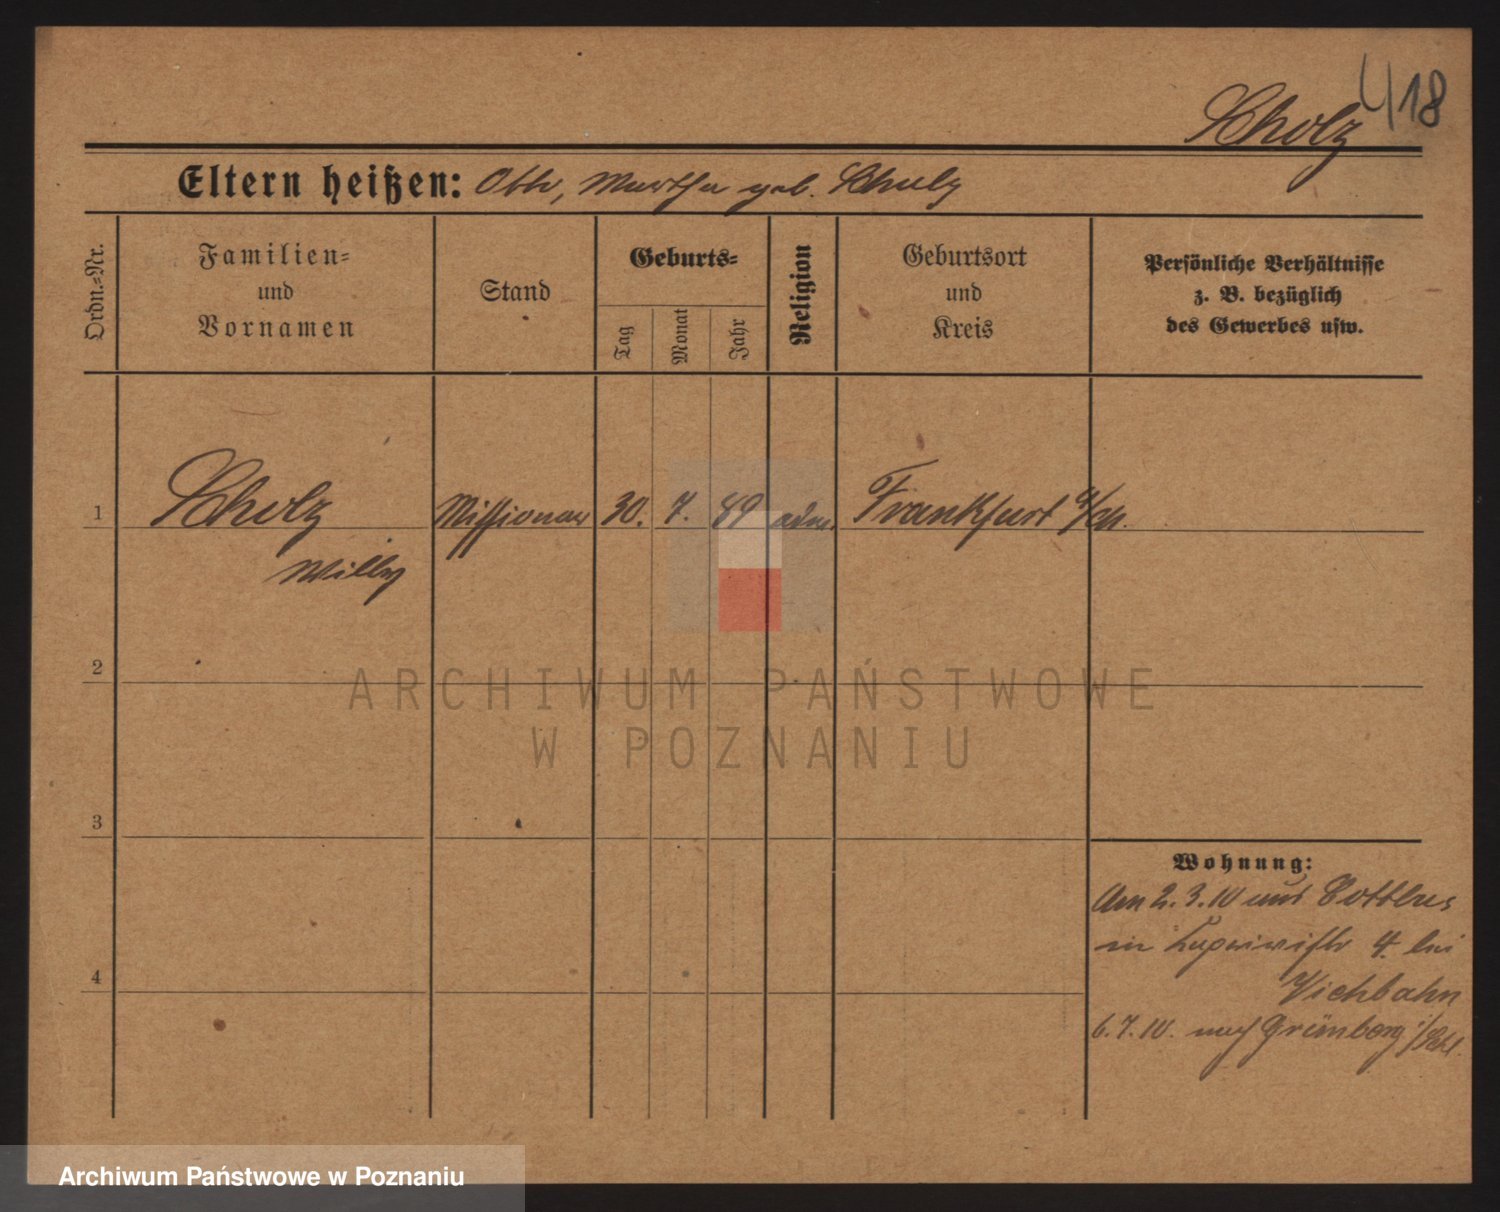 418
Scholz
Eltern heißen: Otto, Martha geb. Schulz
Ordn.-Nr.
Familien-
und
Vornamen
Stand
Geburts-
Tag
Monat
Jahr
Religion
Geburtsort
und
Kreis
Persönliche Verhältnisse
z. B. bezüglich
des Gewerbes usw.
1 Scholz Missionar 30. 7. 89 adv. Frankfurt
Willy
2
ARCHIWUM PAŃSTWOWE
W POZNANIU
3
Wohnung:
Am 2. 3. 10 aus Cottbus
in 4. bei
4
Viehbahn
6. 7. 10. nach Grünberg i/Schl.
Archiwum Państwowe w Poznaniu